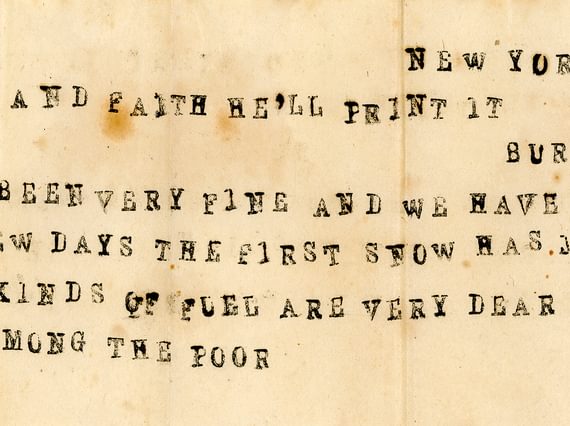 NEW YOR
AND FAITH HE'LL PRINT IT
BUR
BEEN VERY FINE AND WE HAVE
EW DAYS THE FIRST SNOW HAS
KINDS OF FUEL ARE VERY DEAR
MONG THE POOR